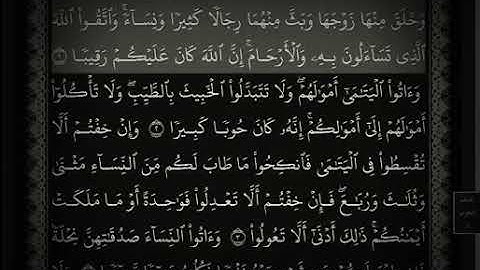 وَخَلَقَ مِنْهَا زَوْجَهَا وَبَثَّ مِنْهُمَا رِجَالًا كَثِيرًا وَنِسَآءً ۚ وَٱتَّقُوا۟ ٱللَّهَ
ٱلَّذِى تَسَآءَلُونَ بِهِۦ وَٱلْأَرْحَامَ ۚ إِنَّ ٱللَّهَ كَانَ عَلَيْكُمْ رَقِيبًا ١
وَءَاتُوا۟ ٱلْيَتَـٰمَىٰٓ أَمْوَٰلَهُمْ ۖ وَلَا تَتَبَدَّلُوا۟ ٱلْخَبِيثَ بِٱلطَّيِّبِ ۖ وَلَا تَأْكُلُوٓا۟
أَمْوَٰلَهُمْ إِلَىٰٓ أَمْوَٰلِكُمْ ۚ إِنَّهُۥ كَانَ حُوبًا كَبِيرًا ٢ وَإِنْ خِفْتُمْ أَلَّا
تُقْسِطُوا۟ فِى ٱلْيَتَـٰمَىٰ فَٱنكِحُوا۟ مَا طَابَ لَكُم مِّنَ ٱلنِّسَآءِ مَثْنَىٰ
وَثُلَـٰثَ وَرُبَـٰعَ ۖ فَإِنْ خِفْتُمْ أَلَّا تَعْدِلُوا۟ فَوَٰحِدَةً أَوْ مَا مَلَكَتْ
أَيْمَـٰنُكُمْ ۚ ذَٰلِكَ أَدْنَىٰٓ أَلَّا تَعُولُوا۟ ٣ وَءَاتُوا۟ ٱلنِّسَآءَ صَدُقَـٰتِهِنَّ نِحْلَةً